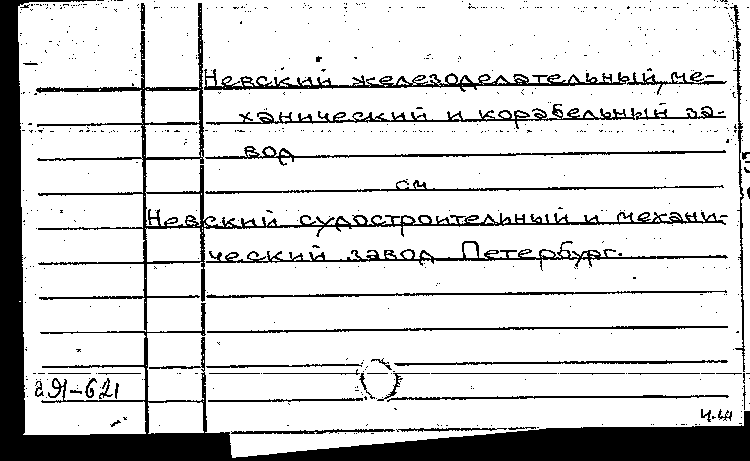 Невский железоделательный, ме-
ханический и корабельный за-
вод
см.
Невский судостроительный и механи-
ческий завод Петербург.